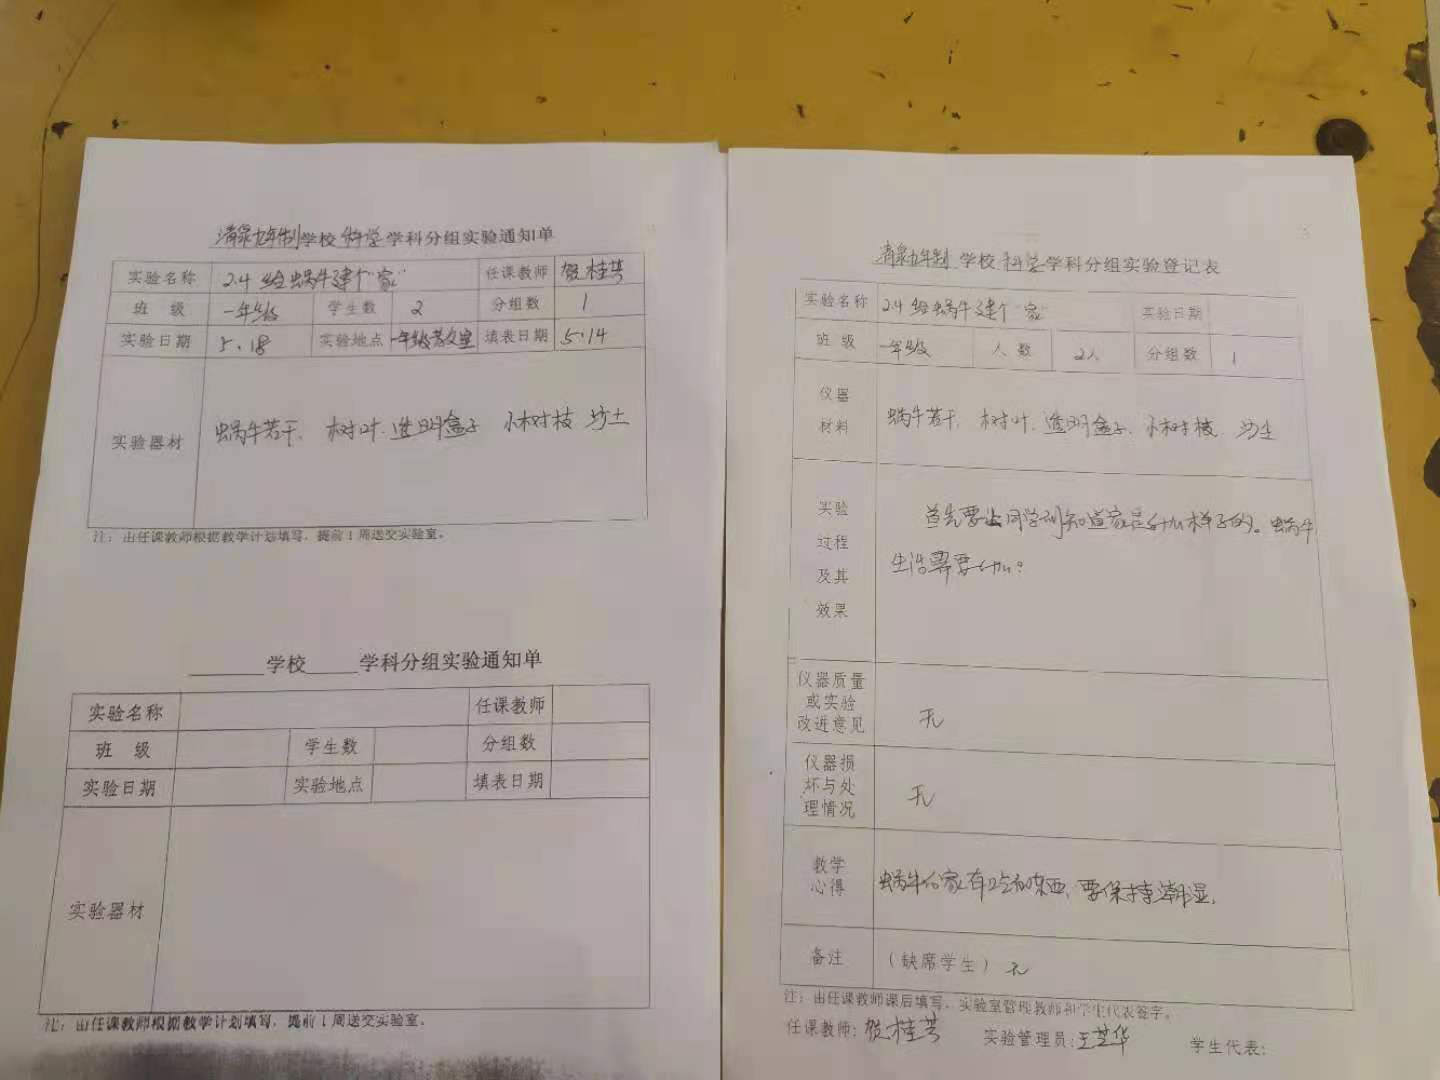 清泉九年制学校 科学 学科分组实验通知单
实验名称 2.4 给蜗牛建个"家" 任课教师 贺桂芳
班 级 一年级 学生数 2 分组数 1
实验日期 5.18 实验地点 一年级教室 填表日期 5.14
实验器材 蜗牛若干, 树叶. 透明盒子 小树枝
注：由任课教师根据教学计划填写，提前1周送交实验室。
学校 学科分组实验通知单
实验名称 任课教师
班 级 学生数 分组数
实验日期 实验地点 填表日期
实验器材
注：由任课教师根据教学计划填写，提前1周送交实验室。
清泉九年制 学校 科学 学科分组实验登记表
实验名称 2.4 给蜗牛建个"家" 实验日期
班 级 一年级 人 数 2人 分组数 1
仪器
材料
蜗牛若干, 树叶. 透明盒子. 小树枝
实验
过程
及其
效果
首先要让同学们知道家是什么样子的。蜗牛
生活需要什么?
仪器质量
或实验
改进意见
无
仪器损
坏与处
理情况
无
教学
心得
蜗牛的家有吃的东西, 要保持潮湿.
备注 （缺席学生）无
注：由任课教师课后填写，实验室管理教师和学生代表签字。
任课教师: 贺桂芳 实验管理员: 王芝华 学生代表: